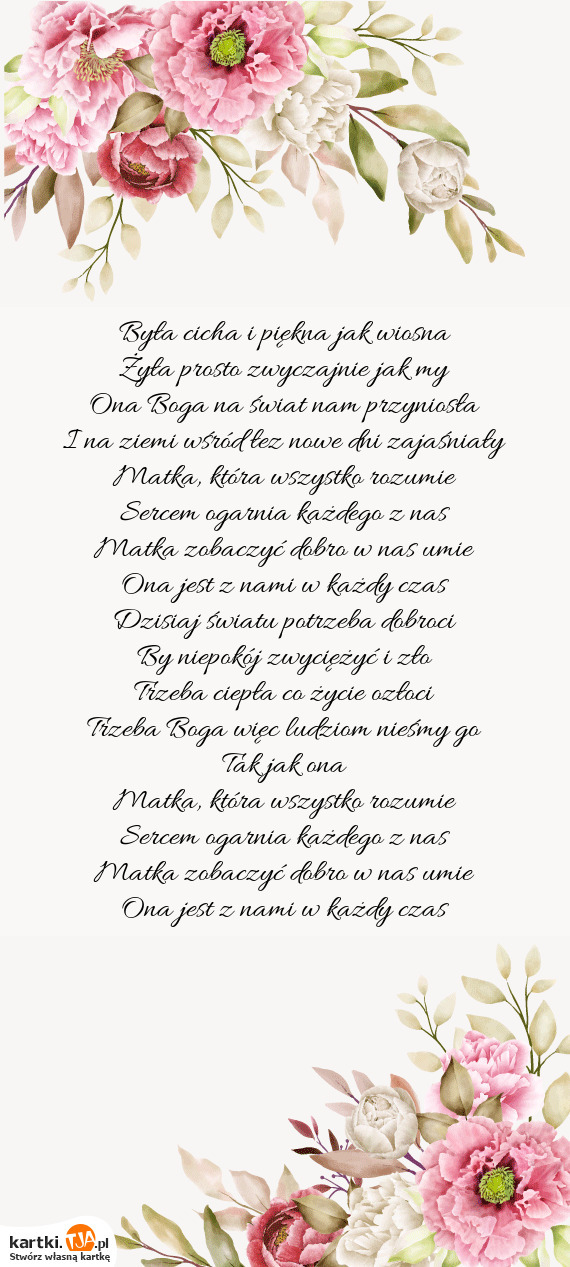 Była cicha i piękna jak wiosna
Żyła prosto zwyczajnie jak my
Ona Boga na świat nam przyniosła
I na ziemi wśród łez nowe dni zajaśniały
Matka, która wszystko rozumie
Sercem ogarnia każdego z nas
Matka zobaczyć dobro w nas umie
Ona jest z nami w każdy czas
Dzisiaj światu potrzeba dobroci
By niepokój zwyciężyć i zło
Trzeba ciepła co życie ozłoci
Trzeba Boga więc ludziom nieśmy go
Tak jak ona
Matka, która wszystko rozumie
Sercem ogarnia każdego z nas
Matka zobaczyć dobro w nas umie
Ona jest z nami w każdy czas
kartki.TJA.pl
Stwórz własną kartkę